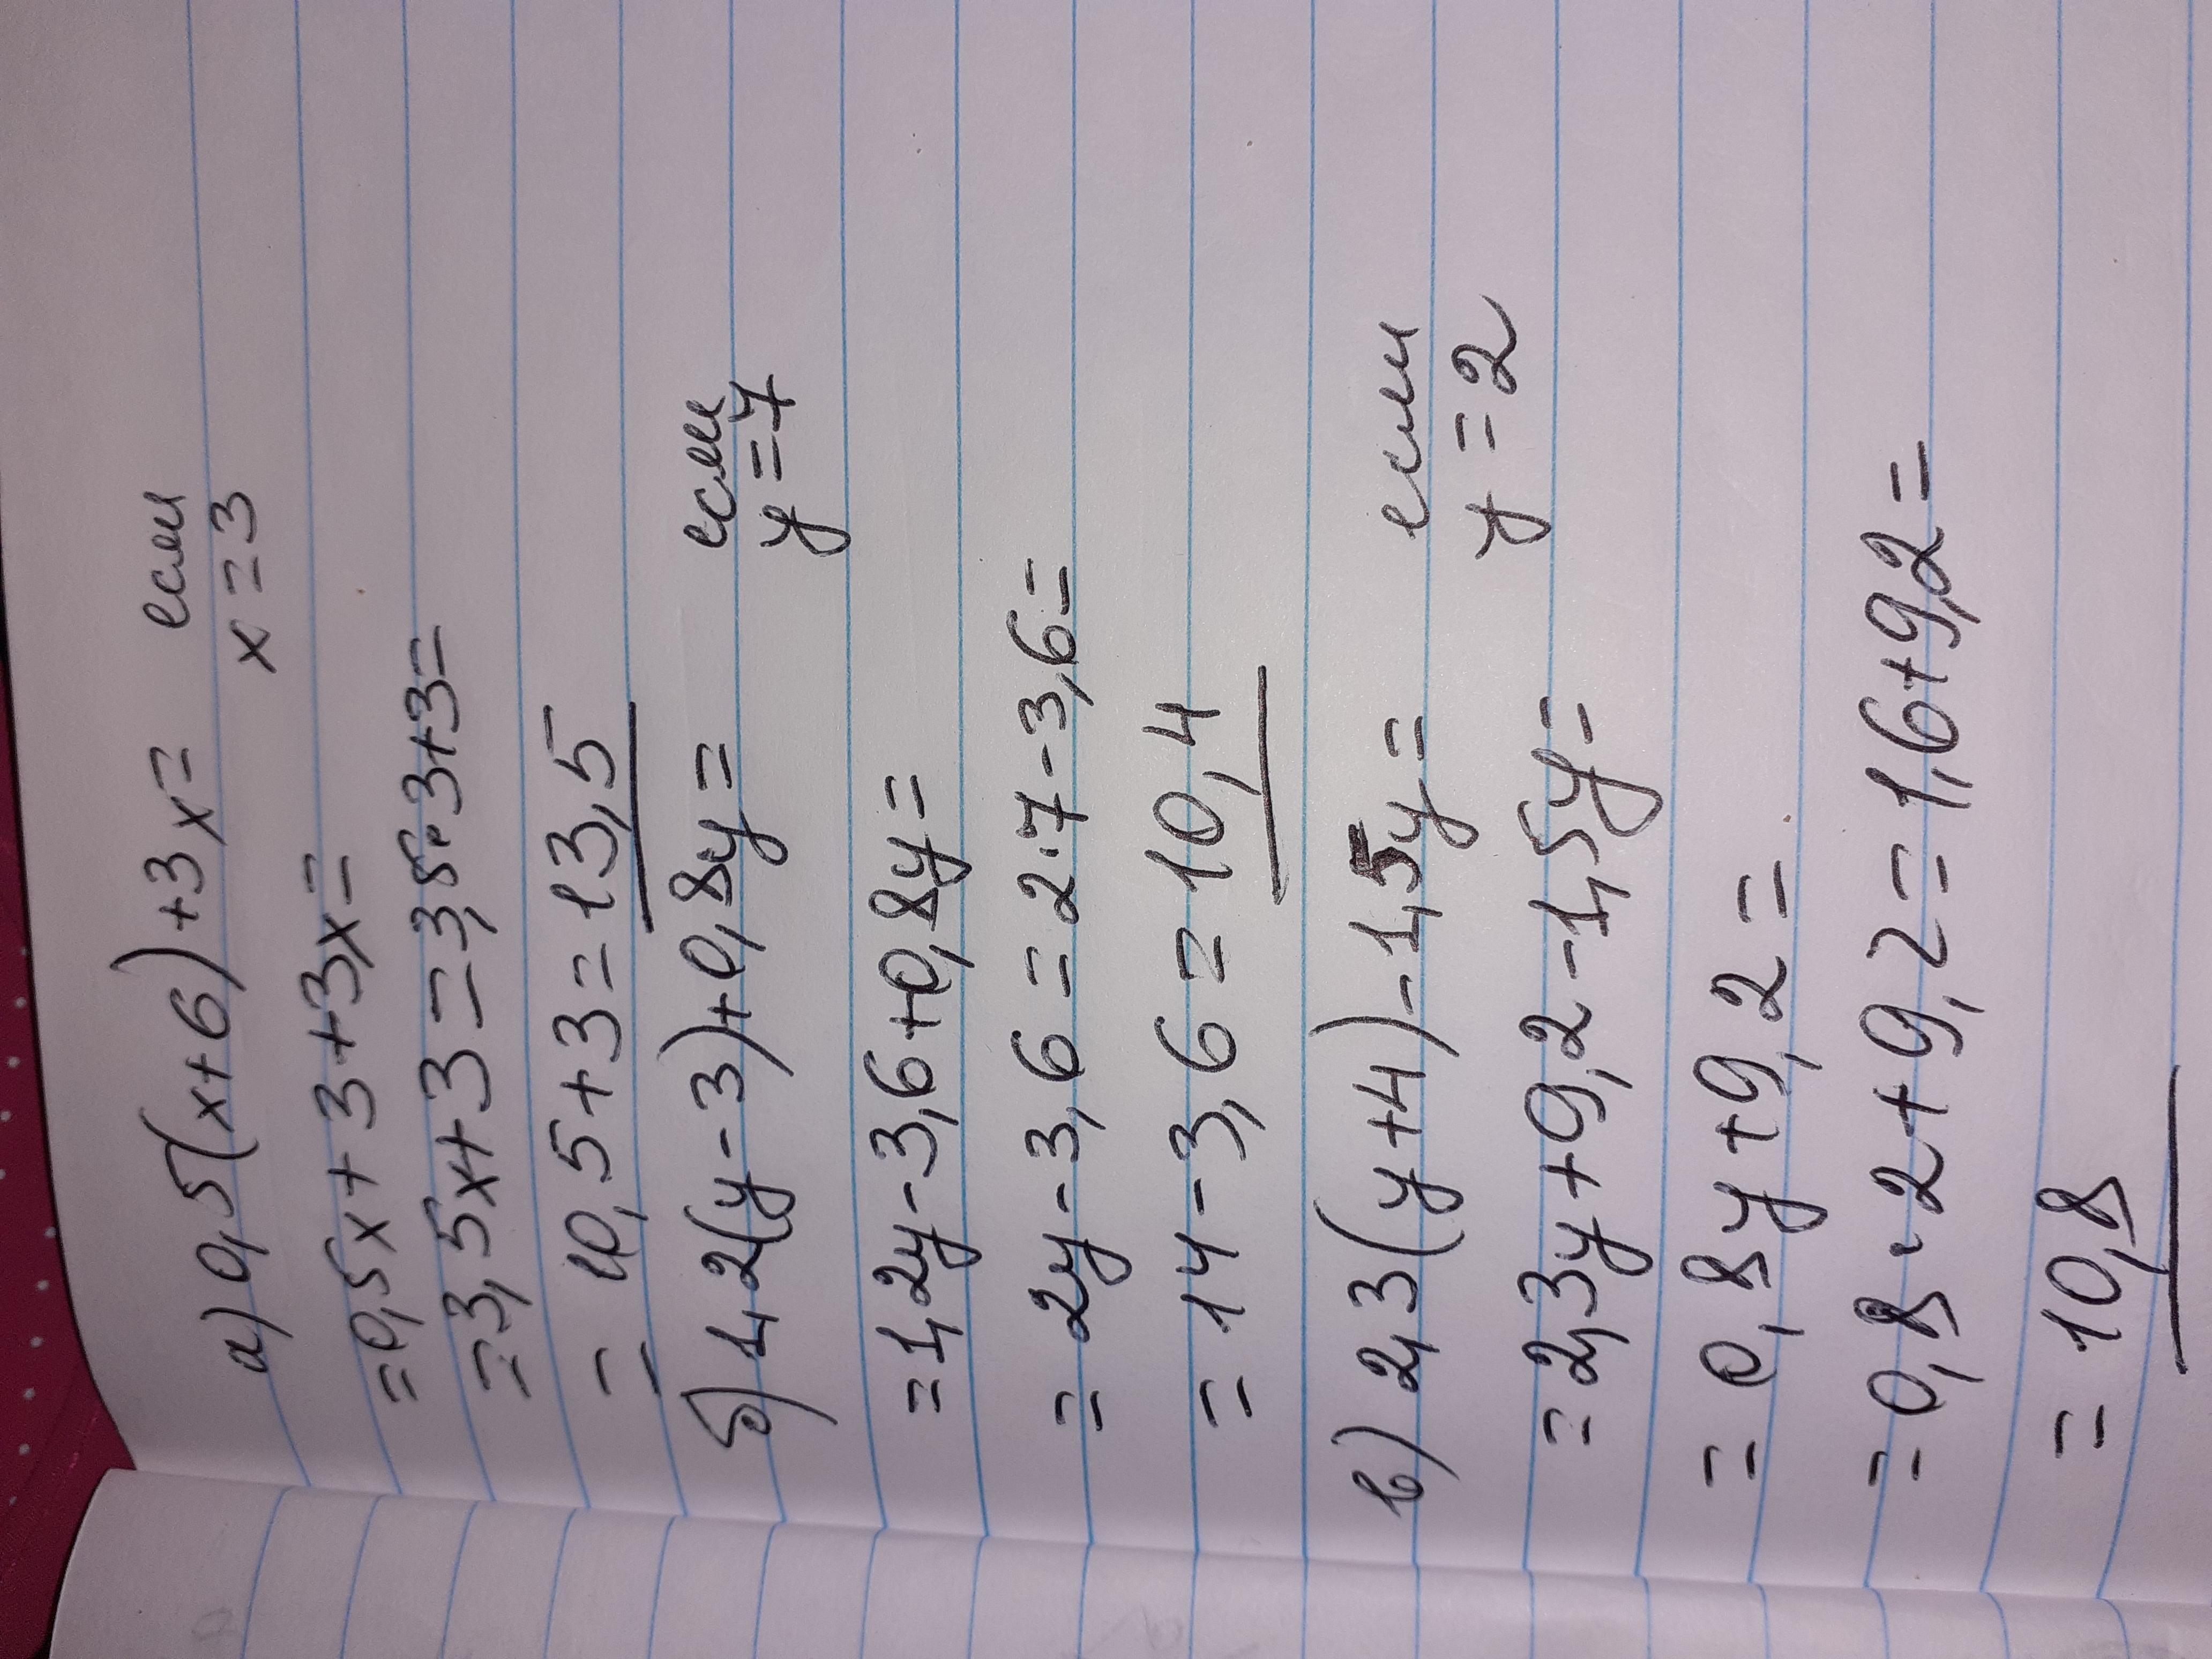 а) 0,5(x+6)+3x= если
x=3
=0,5x+3+3x=
=3,5x+3=3,5·3+3=
= 10,5+3=13,5
б) 1,2(y-3)+0,8y= если
y=7
=1,2y-3,6+0,8y=
= 2y-3,6=2·7-3,6=
= 14-3,6=10,4
в) 2,3(y+4)-1,5y= если
y=2
=2,3y+9,2-1,5y=
= 0,8y+9,2=
=0,8·2+9,2=1,6+9,2=
= 10,8